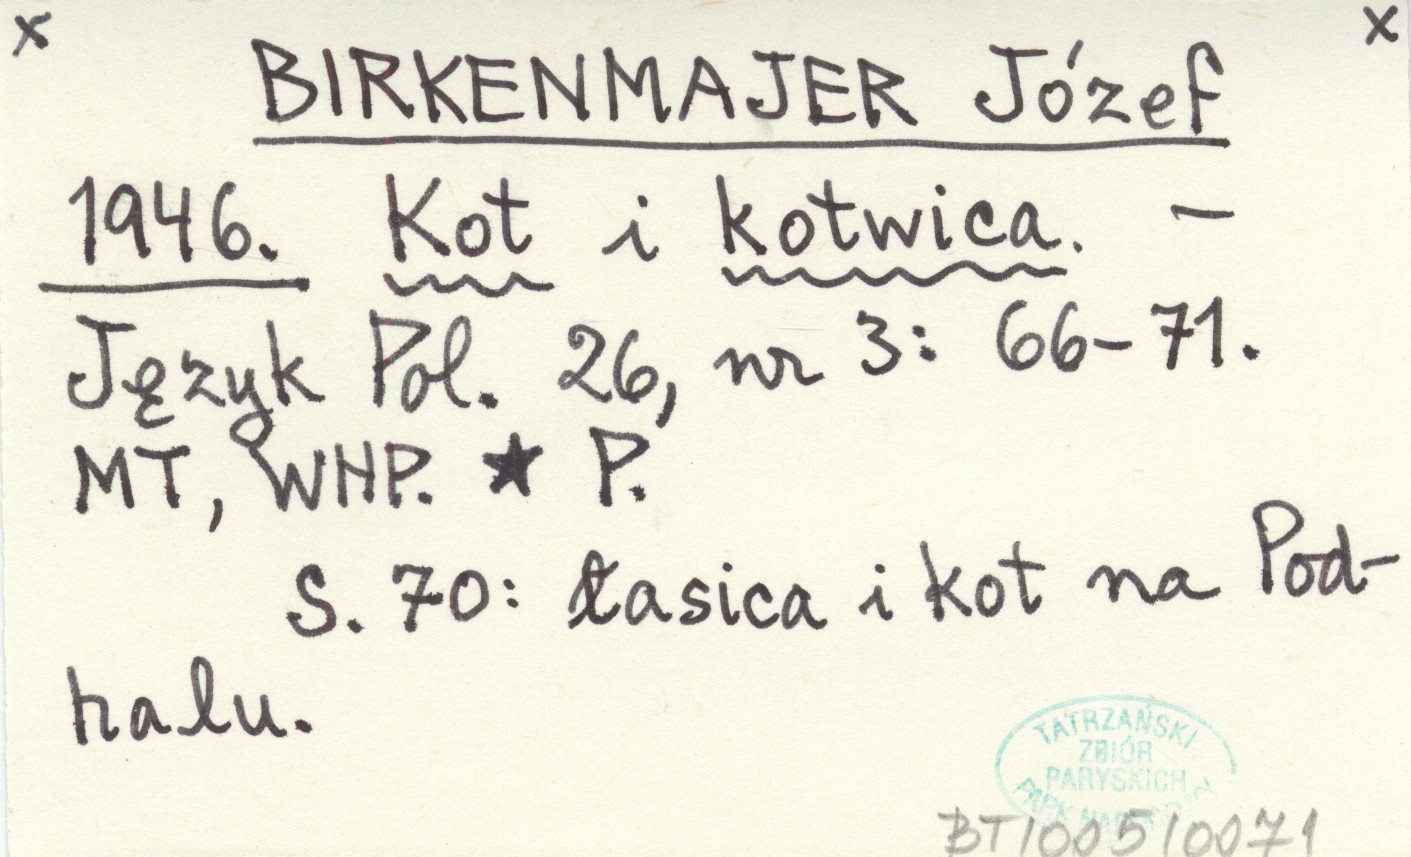 x x
BIRKENMAJER Józef
1946. Kot i kotwica. –
Język Pol. 26, nr 3: 66–71.
MT, WHP. ★ P.
S. 70: łasica i kot na Pod-
halu.
TATRZAŃSKI
ZBIÓR
PARYSKICH
PARK NARODOWY
BT100510071